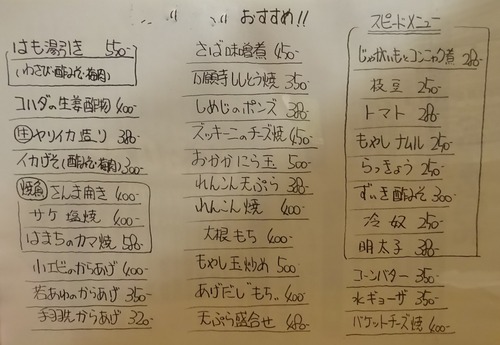 おすすめ!!
はも湯引き 550-
(わさび・酢みそ・梅肉)
コハダの生姜酢物 400-
生ヤリイカ造り 380-
イカげそ(酢みそ・梅肉) 300-
焼魚 さんま開き 400-
サケ塩焼 400-
はまちのカマ焼 580-
小エビのからあげ 400-
若あゆのからあげ 350-
手羽先からあげ 320-
さば味噌煮 450-
万願寺ししとう焼 350-
しめじのポンズ 380-
ズッキーニのチーズ焼 450-
おかかにら玉 500-
れんこん天ぷら 380-
れんこん焼 400-
大根もち 400-
もやし玉炒め 500-
あげだし"もち" 400-
天ぷら盛合せ 480-
スピードメニュー
じゃがいもとコンニャク煮 280-
枝豆 250-
トマト 280-
もやしナムル 250-
らっきょう 250-
ずいき酢みそ 300-
冷奴 250-
明太子 380-
コーンバター 350-
水ギョーザ 350-
バケットチーズ焼 400-